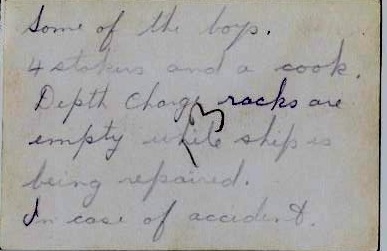 Some of the boys.
4 stokers and a cook.
Depth charge racks are
empty while ship is
being repaired.
In case of accident.